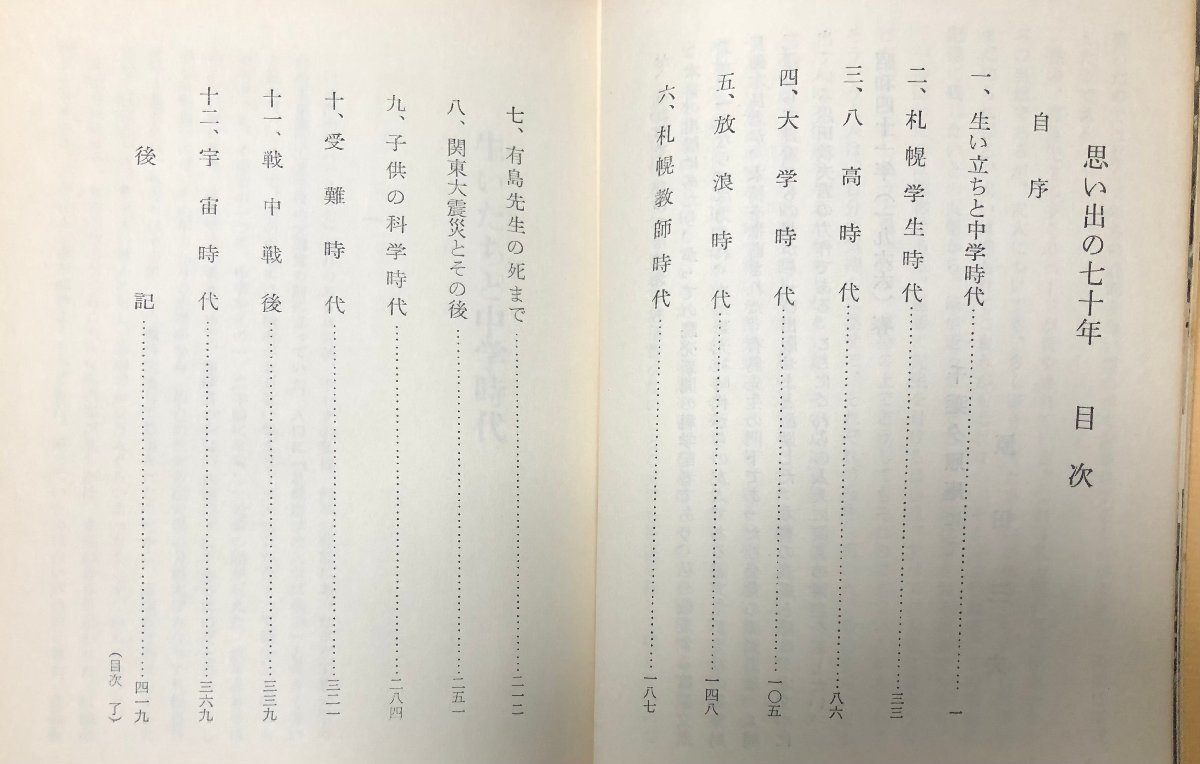 思い出の七十年 目次
自序
一、生い立ちと中学時代……一
二、札幌学生時代……三三
三、八高時代……八六
四、大学時代……一〇五
五、放浪時代……一四八
六、札幌教師時代……一八七
七、有島先生の死まで……二一二
八、関東大震災とその後……二五一
九、子供の科学時代……二八四
十、受難時代……三二一
十一、戦中戦後……三三九
十二、宇宙時代……三六九
後記……四一九
(目次 了)